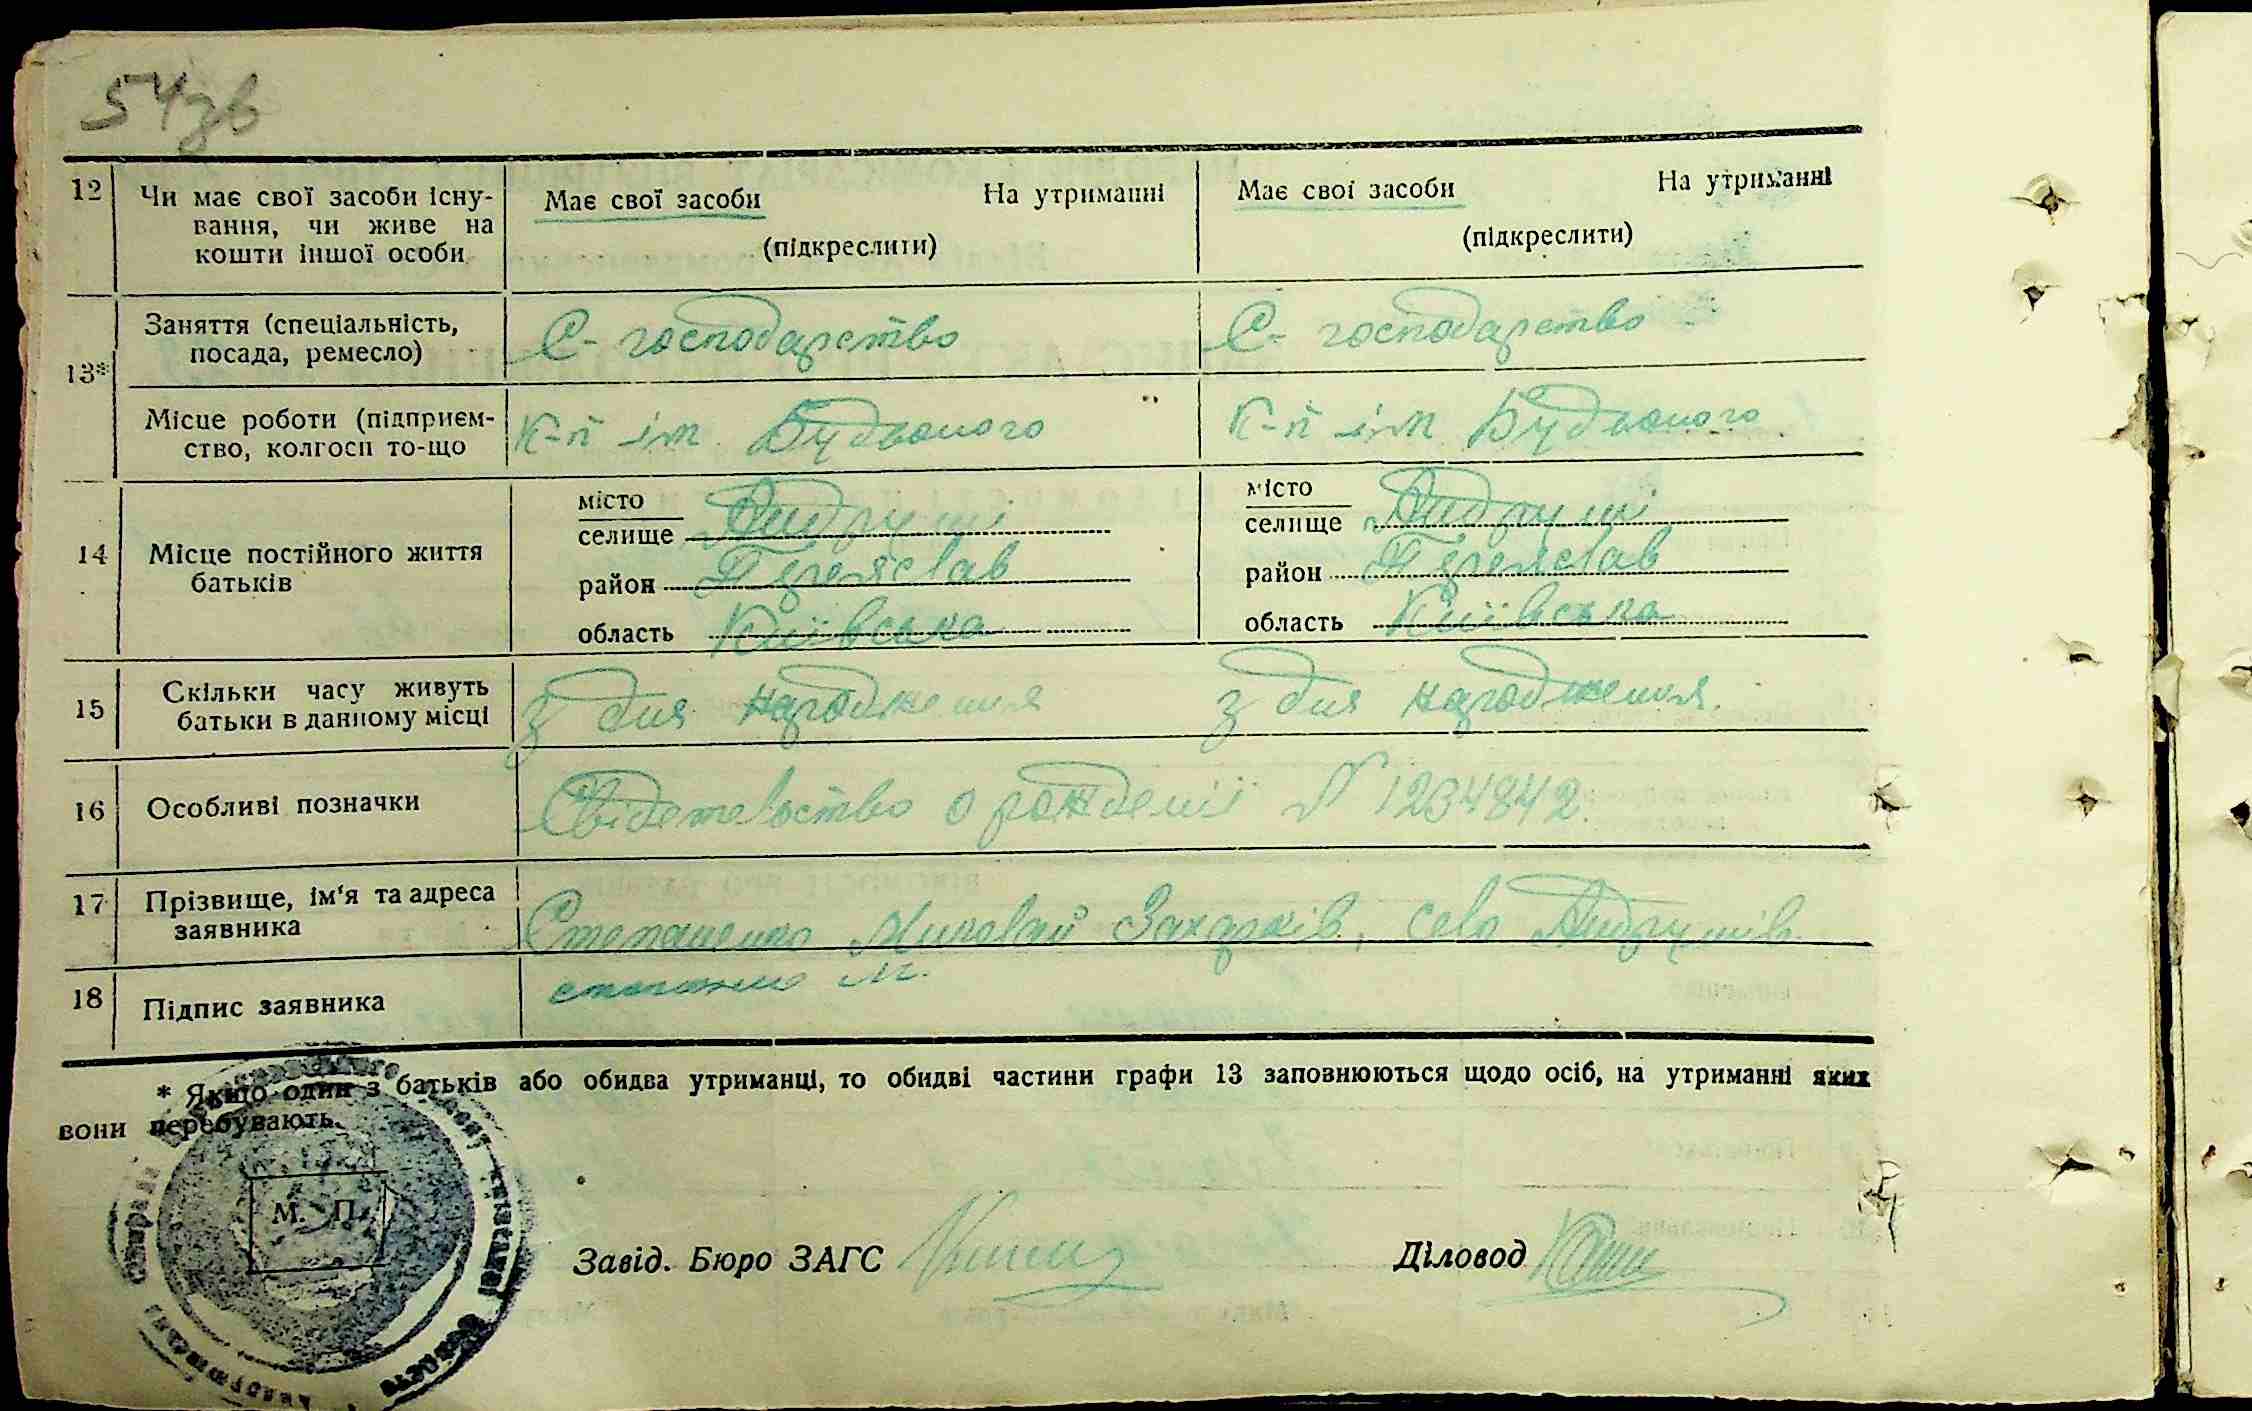 54зв
12 Чи має свої засоби існу- Має свої засоби На утриманні Має свої засоби На утриманні
вання, чи живе на (підкреслити) (підкреслити)
кошти іншої особи
13* Заняття (спеціальність, С-господарство С-господарство
посада, ремесло)
Місце роботи (підприєм- К-п ім Будьоного К-п ім Будьоного
ство, колгосп то-що
14 Місце постійного життя батьків
місто
селище Андруші
район Переяслав
область Київська
місто
селище Андруші
район Переяслав
область Київська
15 Скільки часу живуть з дня народження з дня народження.
батьки в данному місці
16 Особливі позначки Свідетельство о рожденії N 1234842.
17 Прізвище, ім'я та адреса Степаненко Миколай Захарків, село Андрушів
заявника
18 Підпис заявника М.
* Якщо один з батьків або обидва утриманці, то обидві частини графи 13 заповнюються щодо осіб, на утриманні яких
вони перебувають.
М. П.
Завід. Бюро ЗАГС Діловод